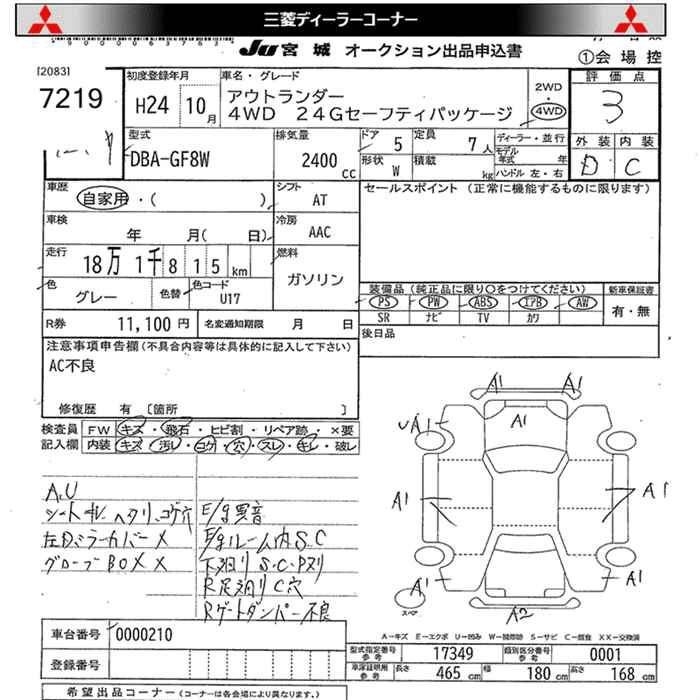 三菱ディーラーコーナー
JU 宮城 オークション出品申込書
①会場控
[2083]
7219
初度登録年月
H24 10月
車名・グレード
アウトランダー
4WD 24Gセーフティパッケージ
2WD
4WD
評価点
3
外装 内装
D C
型式
DBA-GF8W
排気量
2400 CC
ドア 5
形状 W
定員 7人
積載 kg
ディーラー・並行
モデル年式 年
ハンドル 左・右
車歴
自家用・( )
シフト
AT
セールスポイント (正常に機能するものに限ります)
車検
年 月( 日)
冷房
AAC
走行
18万 1千 8 1 5 km
燃料
ガソリン
色
グレー
色替
色コード
U17
装備品 (純正品に限り〇をつけてください)
PS PW ABS エアB AW
SR ナビ TV カワ
新車保証書
有・無
R券 11,100 円
名変通知期限 月 日
後日品
注意事項申告欄 (不具合内容等は具体的に記入して下さい)
AC不良
修復歴 有 [箇所 ]
検査員記入欄
FW キズ・飛石・ヒビ割・リペア跡・×要
内装 キズ・汚レ・コゲ・穴・スレ・キレ・破レ
A.U
シートキレ ヘタリ、コゲ穴
左Dミラーカバー×
グローブBOX ×
E/g異音
E/gルーム内S.C
下廻りS・C・Pヌリ
R足廻りC穴
Rゲートダンパー不良
A1 A1
A1
A1
A1 A1
A1 A1
A2
スペア
車台番号 0000210
登録番号
A-キズ E-エクボ U-凹み W-補修跡 S-サビ C-腐食 XX-交換済
型式指定番号 参考 17349
類別区分番号 参考 0001
車庫証明用 参考 長さ 465 cm 幅 180 cm 高さ 168 cm
希望出品コーナー (コーナーは各会場により異なります。)